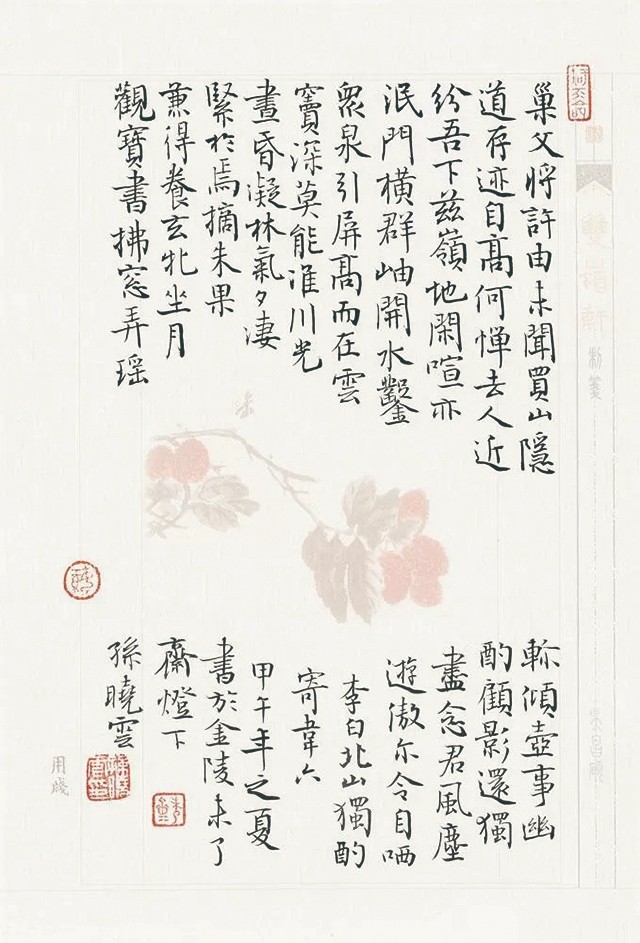 巢父將許由未聞買山隱
道存迹自高何憚去人近
紛吾下兹嶺地閑喧亦
泯門橫群岫開水鑿
衆泉引屏高而在雲
竇深莫能准川光
晝昏凝林氣夕凄
緊於焉摘朱果
兼得養玄牝坐月
觀寶書拂窓弄瑶
軫傾壺事幽
酌顧影還獨
盡念君風塵
遊傲尔令自哂
李白北山獨酌
寄韋六
甲午年之夏
書於金陵未了
齋燈下
孫曉雲
用牋